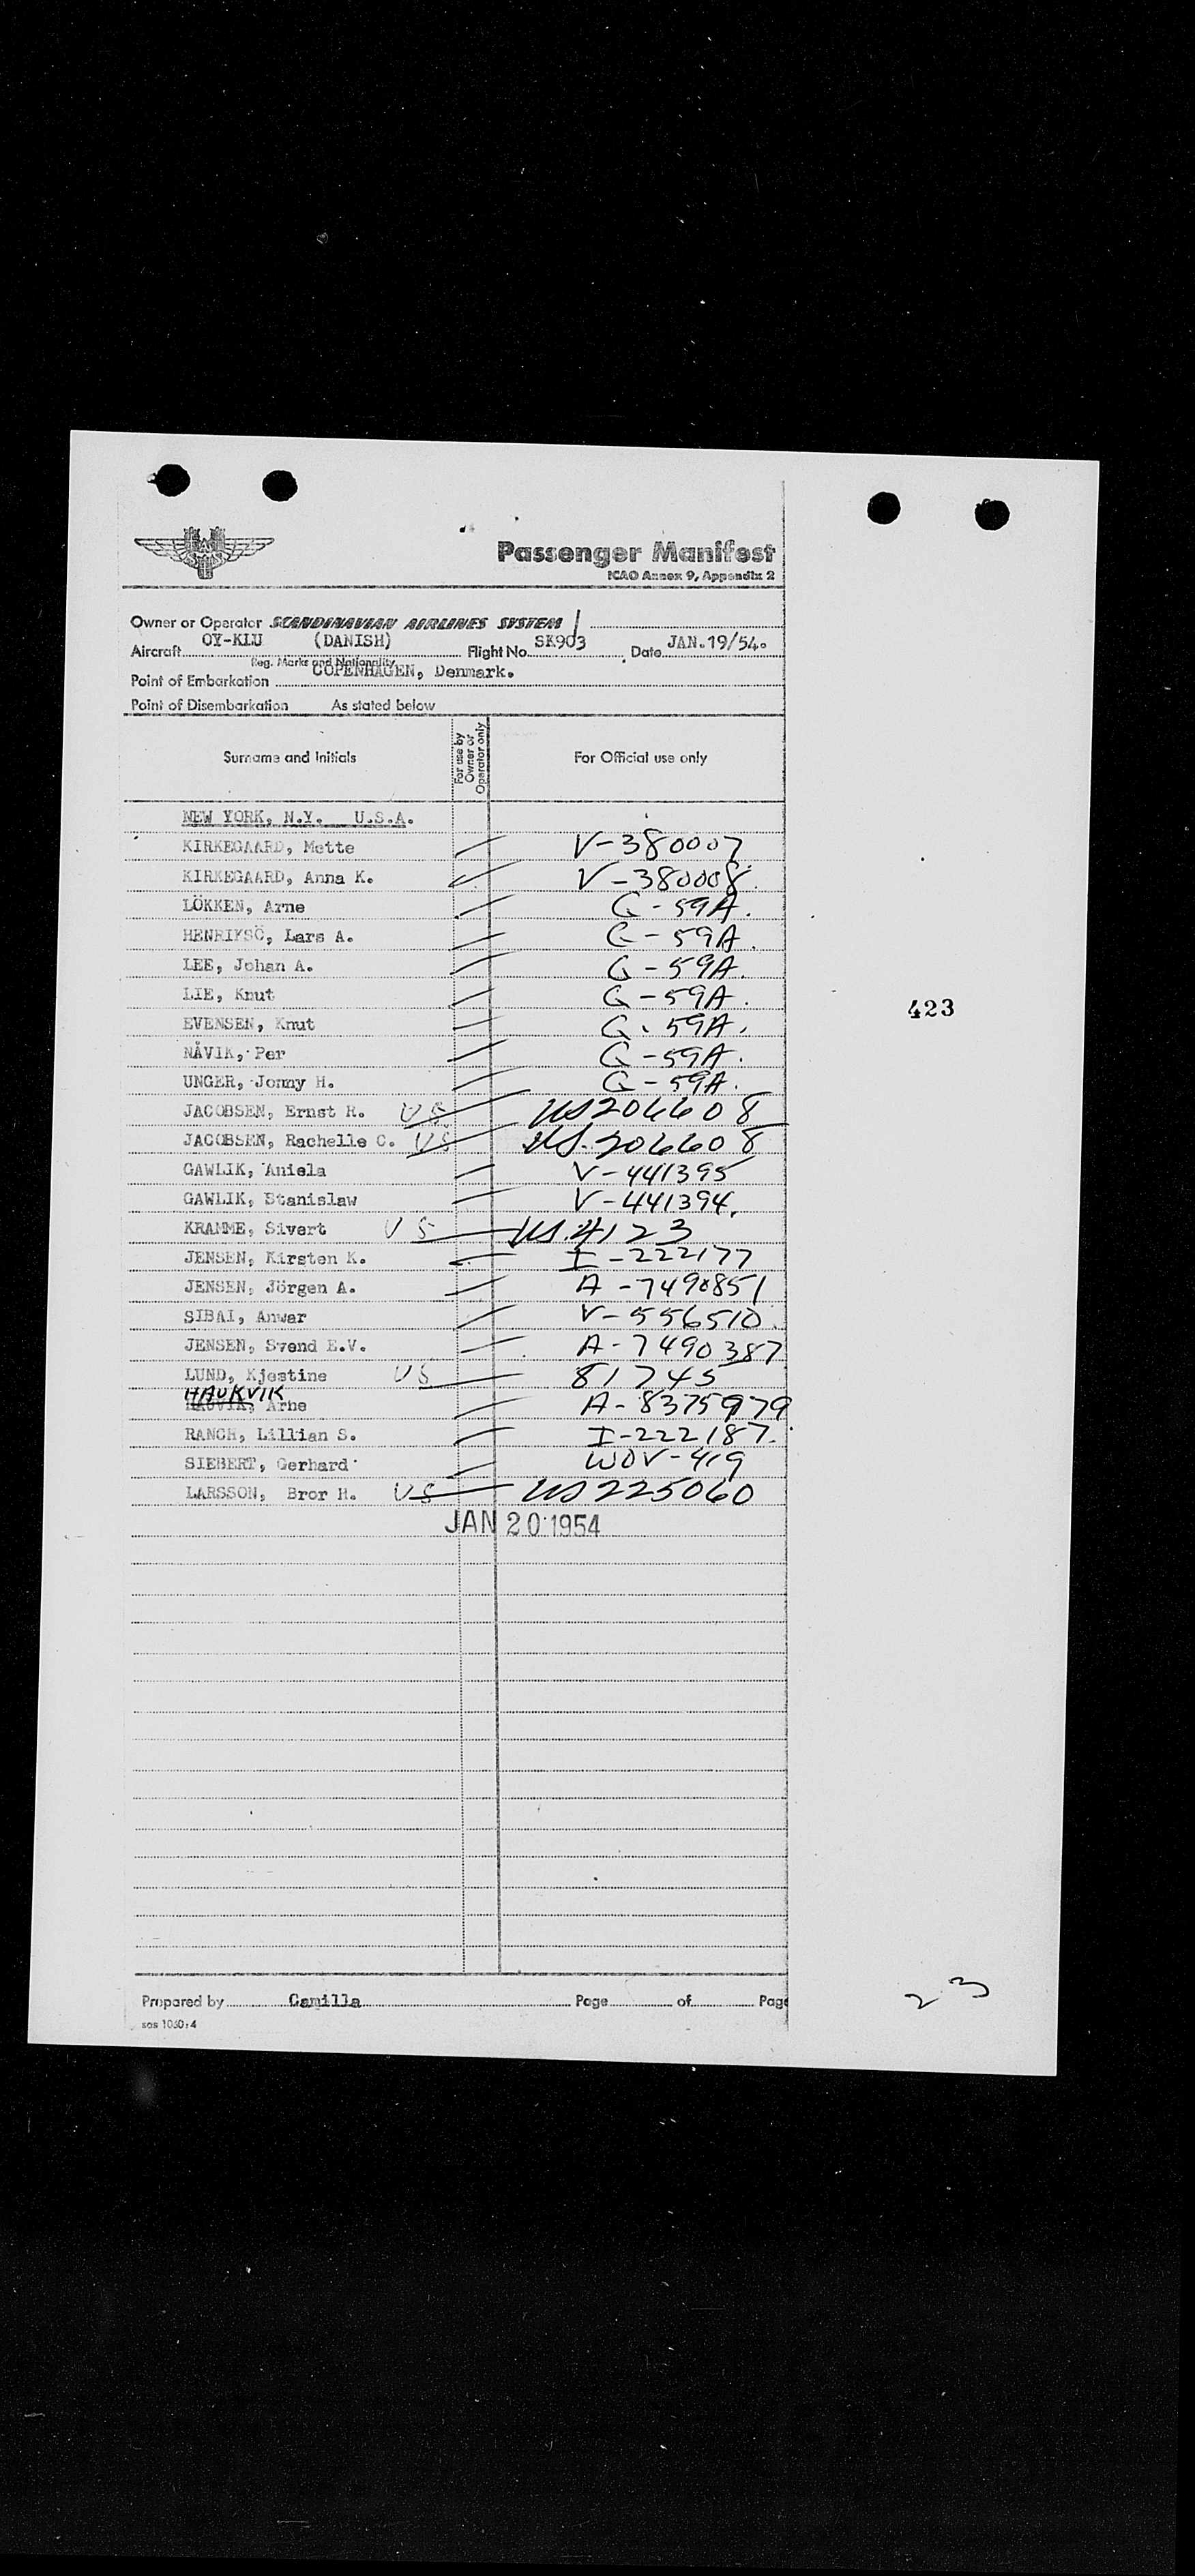 Passenger Manifest
ICAO Annex 9, Appendix 2
Owner or Operator SCANDINAVIAN AIRLINES SYSTEM
Aircraft OY-KLU (DANISH) Flight No. SK903 Date JAN.19/54.
Reg. Marks and Nationality
Point of Embarkation COPENHAGEN, Denmark.
Point of Disembarkation As stated below
Surname and Initials For use by Owner or Operator only For Official use only
NEW YORK, N.Y. U.S.A.
KIRKEGAARD, Mette V-380007
KIRKEGAARD, Anna K. V-380008.
LÖKKEN, Arne G-59A.
HENRIKSÖ, Lars A. G-59A.
LEE, Johan A. G-59A.
LIE, Knut G-59A.
423
EVENSEN, Knut G-59A.
NÅVIK, Per G-59A.
UNGER, Jonny H. G-59A.
JACOBSEN, Ernst R. US US206608
JACOBSEN, Rachelle C. US US.206608
GAWLIK, Aniela V-441395
GAWLIK, Stanislaw V-441394.
KRAMME, Sivert US US.4123
JENSEN, Kirsten K. I-222177
JENSEN, Jörgen A. A-7490851
SIBAI, Anwar V-556510
JENSEN, Svend E.V. A-7490387
LUND, Kjestine US 81745
HAUKVIK
Arne A-8375979
RANCH, Lillian S. I-222187.
SIEBERT, Gerhard WDV-419
LARSSON, Bror H. US US225060
JAN 20 1954
Prepared by Camilla Page of Page
23
sas 1030:4